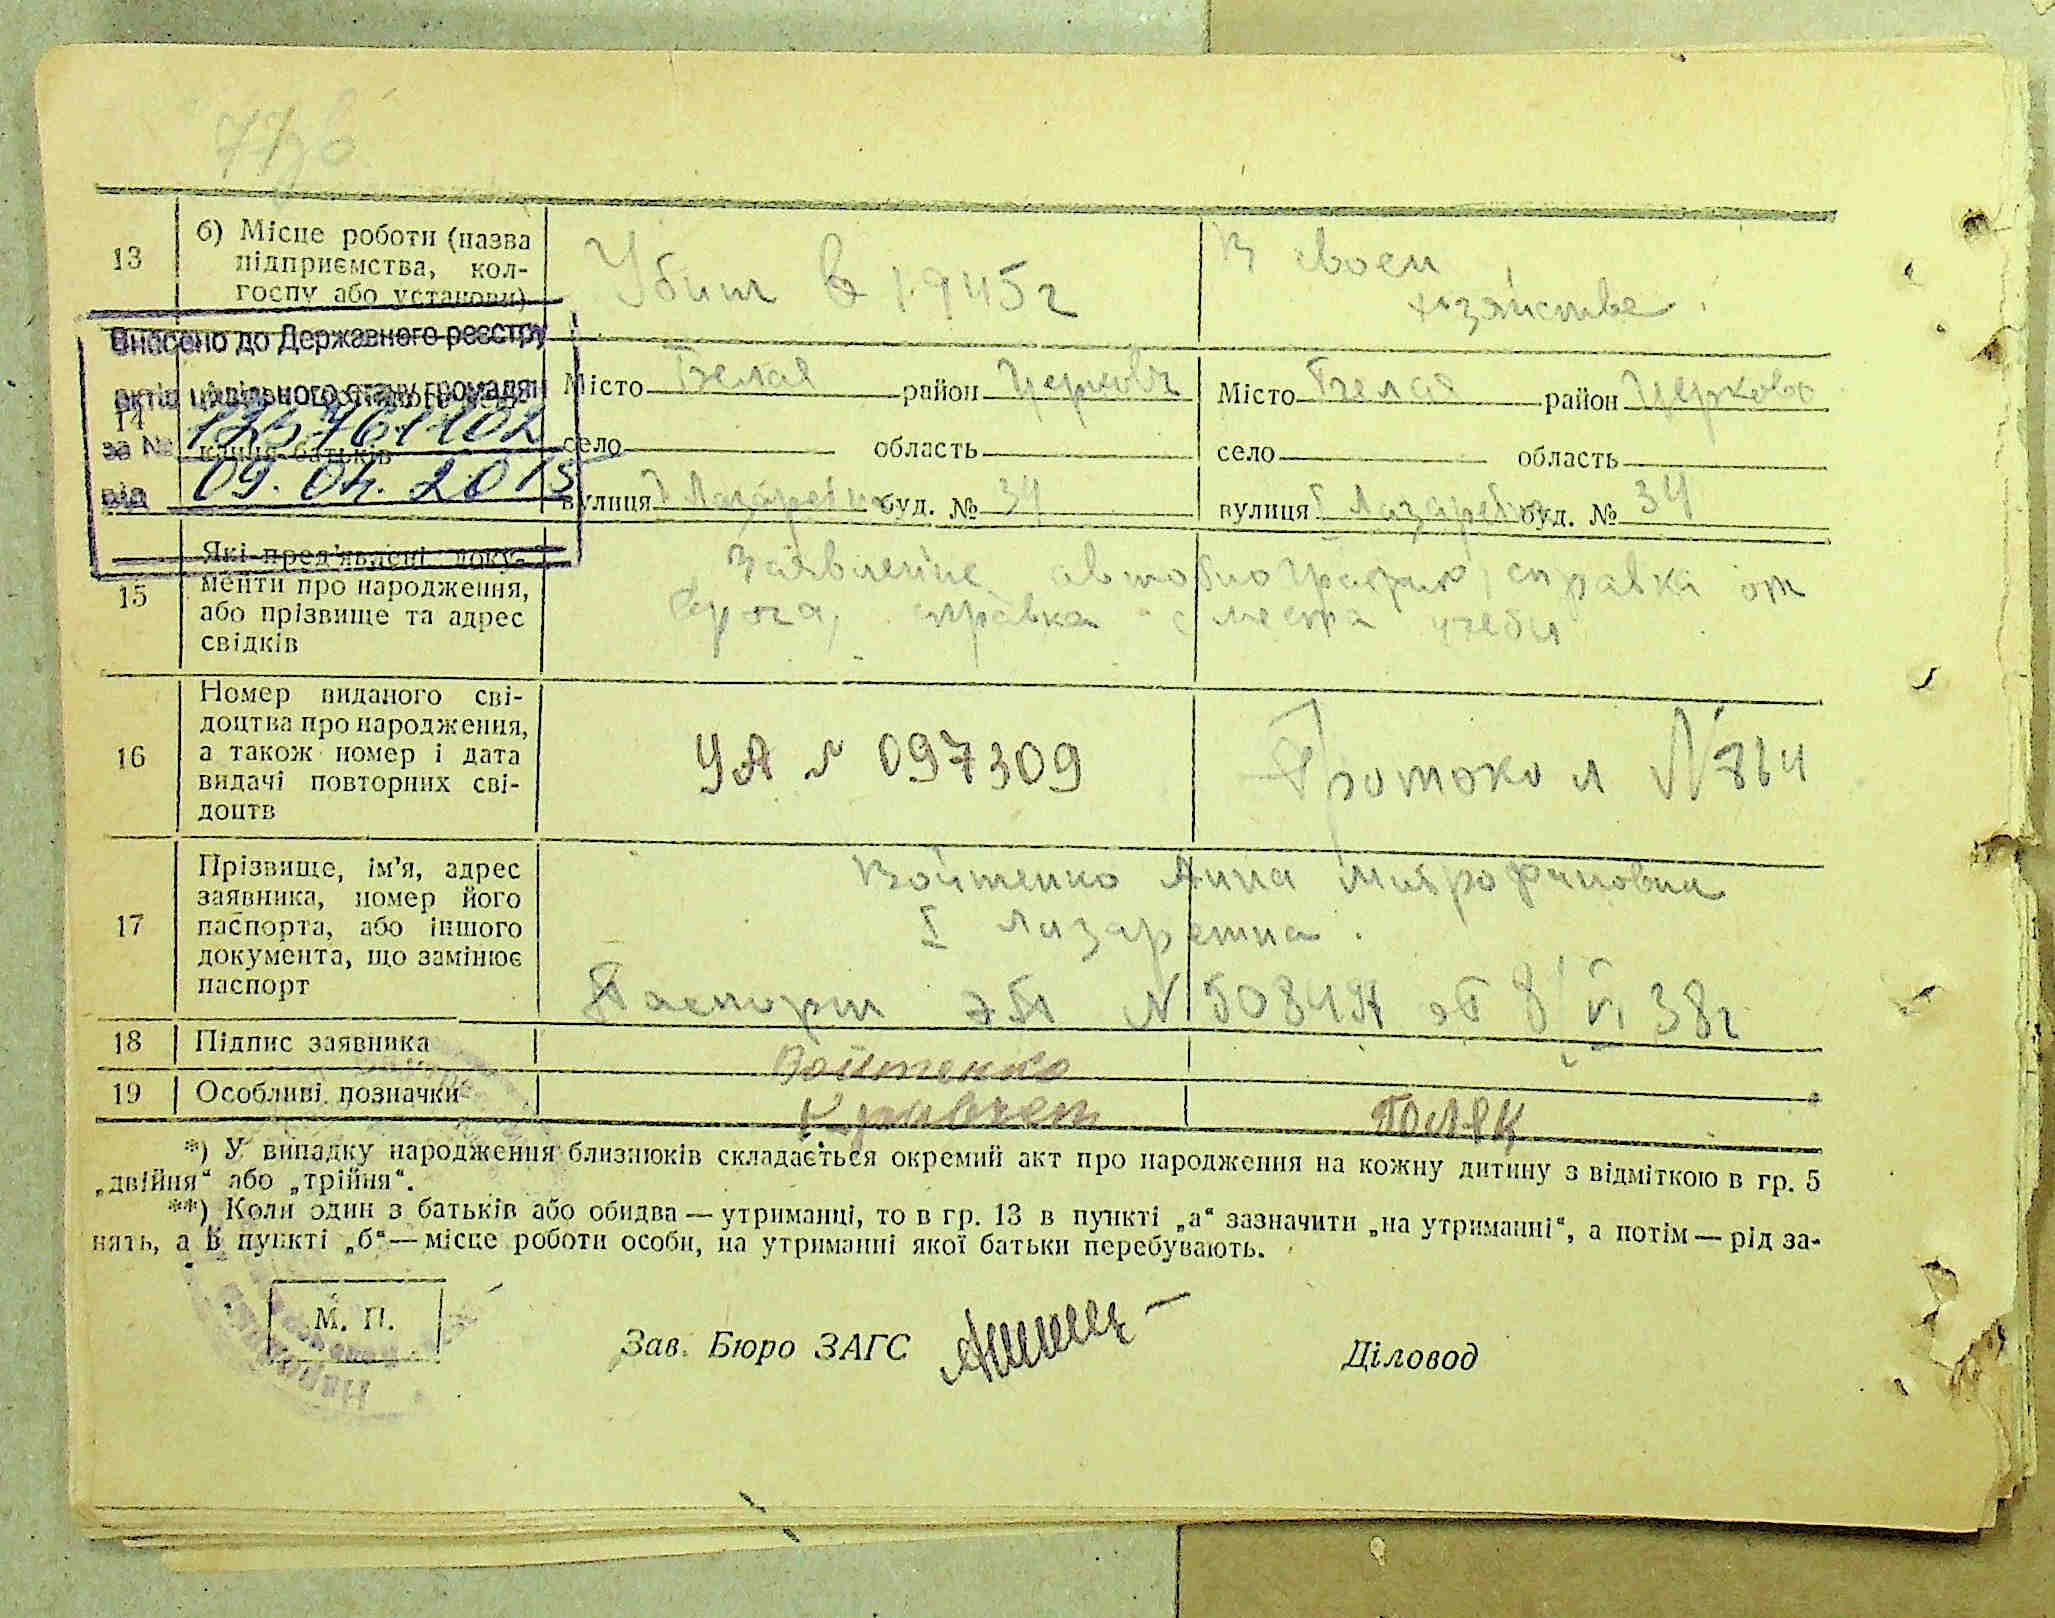 77зв
13
б) Місце роботи (назва
підприємства, кол-
госпу або установи)
Убит в 1945 г
В своем
хозяйстве
Внесено до Державного реєстру
актів цивільного стану громадян
за №
від 09.04.2015
14
кання батьків
Місто Белая район Церковь
село область
вулиця I Лазаретна буд. № 34
Місто Белая район Церковь
село область
вулиця I Лазаретна буд. № 34
15
Які пред'явлені доку-
менти про народження,
або прізвище та адрес
свідків
Заявление автобиография, справка от
врача, справка с места учебы
16
Номер виданого сві-
доцтва про народження,
а також номер і дата
видачі повторних сві-
доцтв
УА № 097309
Протокол № 814
17
Прізвище, ім'я, адрес
заявника, номер його
паспорта, або іншого
документа, що замінює
паспорт
Войтенко Анна Митрофановна
I Лазаретна.
Паспорт от 8 VI 38г
18
Підпис заявника
Войтенко
19
Особливі позначки
*) У випадку народження близнюків складається окремий акт про народження на кожну дитину з відміткою в гр. 5
„двійня“ або „трійня“.
**) Коли один з батьків або обидва — утриманці, то в гр. 13 в пункті „а“ зазначити „на утриманні“, а потім — рід за-
нять, а в пункті „б“ — місце роботи особи, на утриманні якої батьки перебувають.
М. П.
Зав. Бюро ЗАГС
Діловод